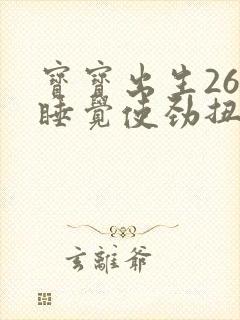 寶寶出生26
睡覺使勁扭
玄離爺